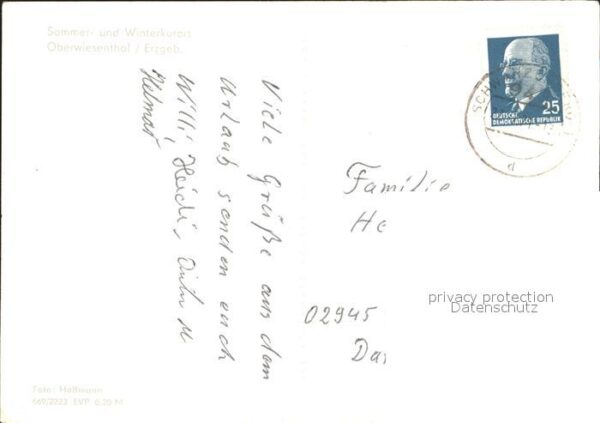 Sommer- und Winterkurort
Oberwiesenthal / Erzgeb.
Viele Grüße aus dem
Urlaub senden euch
Willi, Heidi,
Helmar
Foto: Hoffmann
669/2223 EVP 0.20 M
25
DEUTSCHE
DEMOKRATISCHE REPUBLIK
SCHW
d
Familie
He
02945
Da
privacy protection
Datenschutz